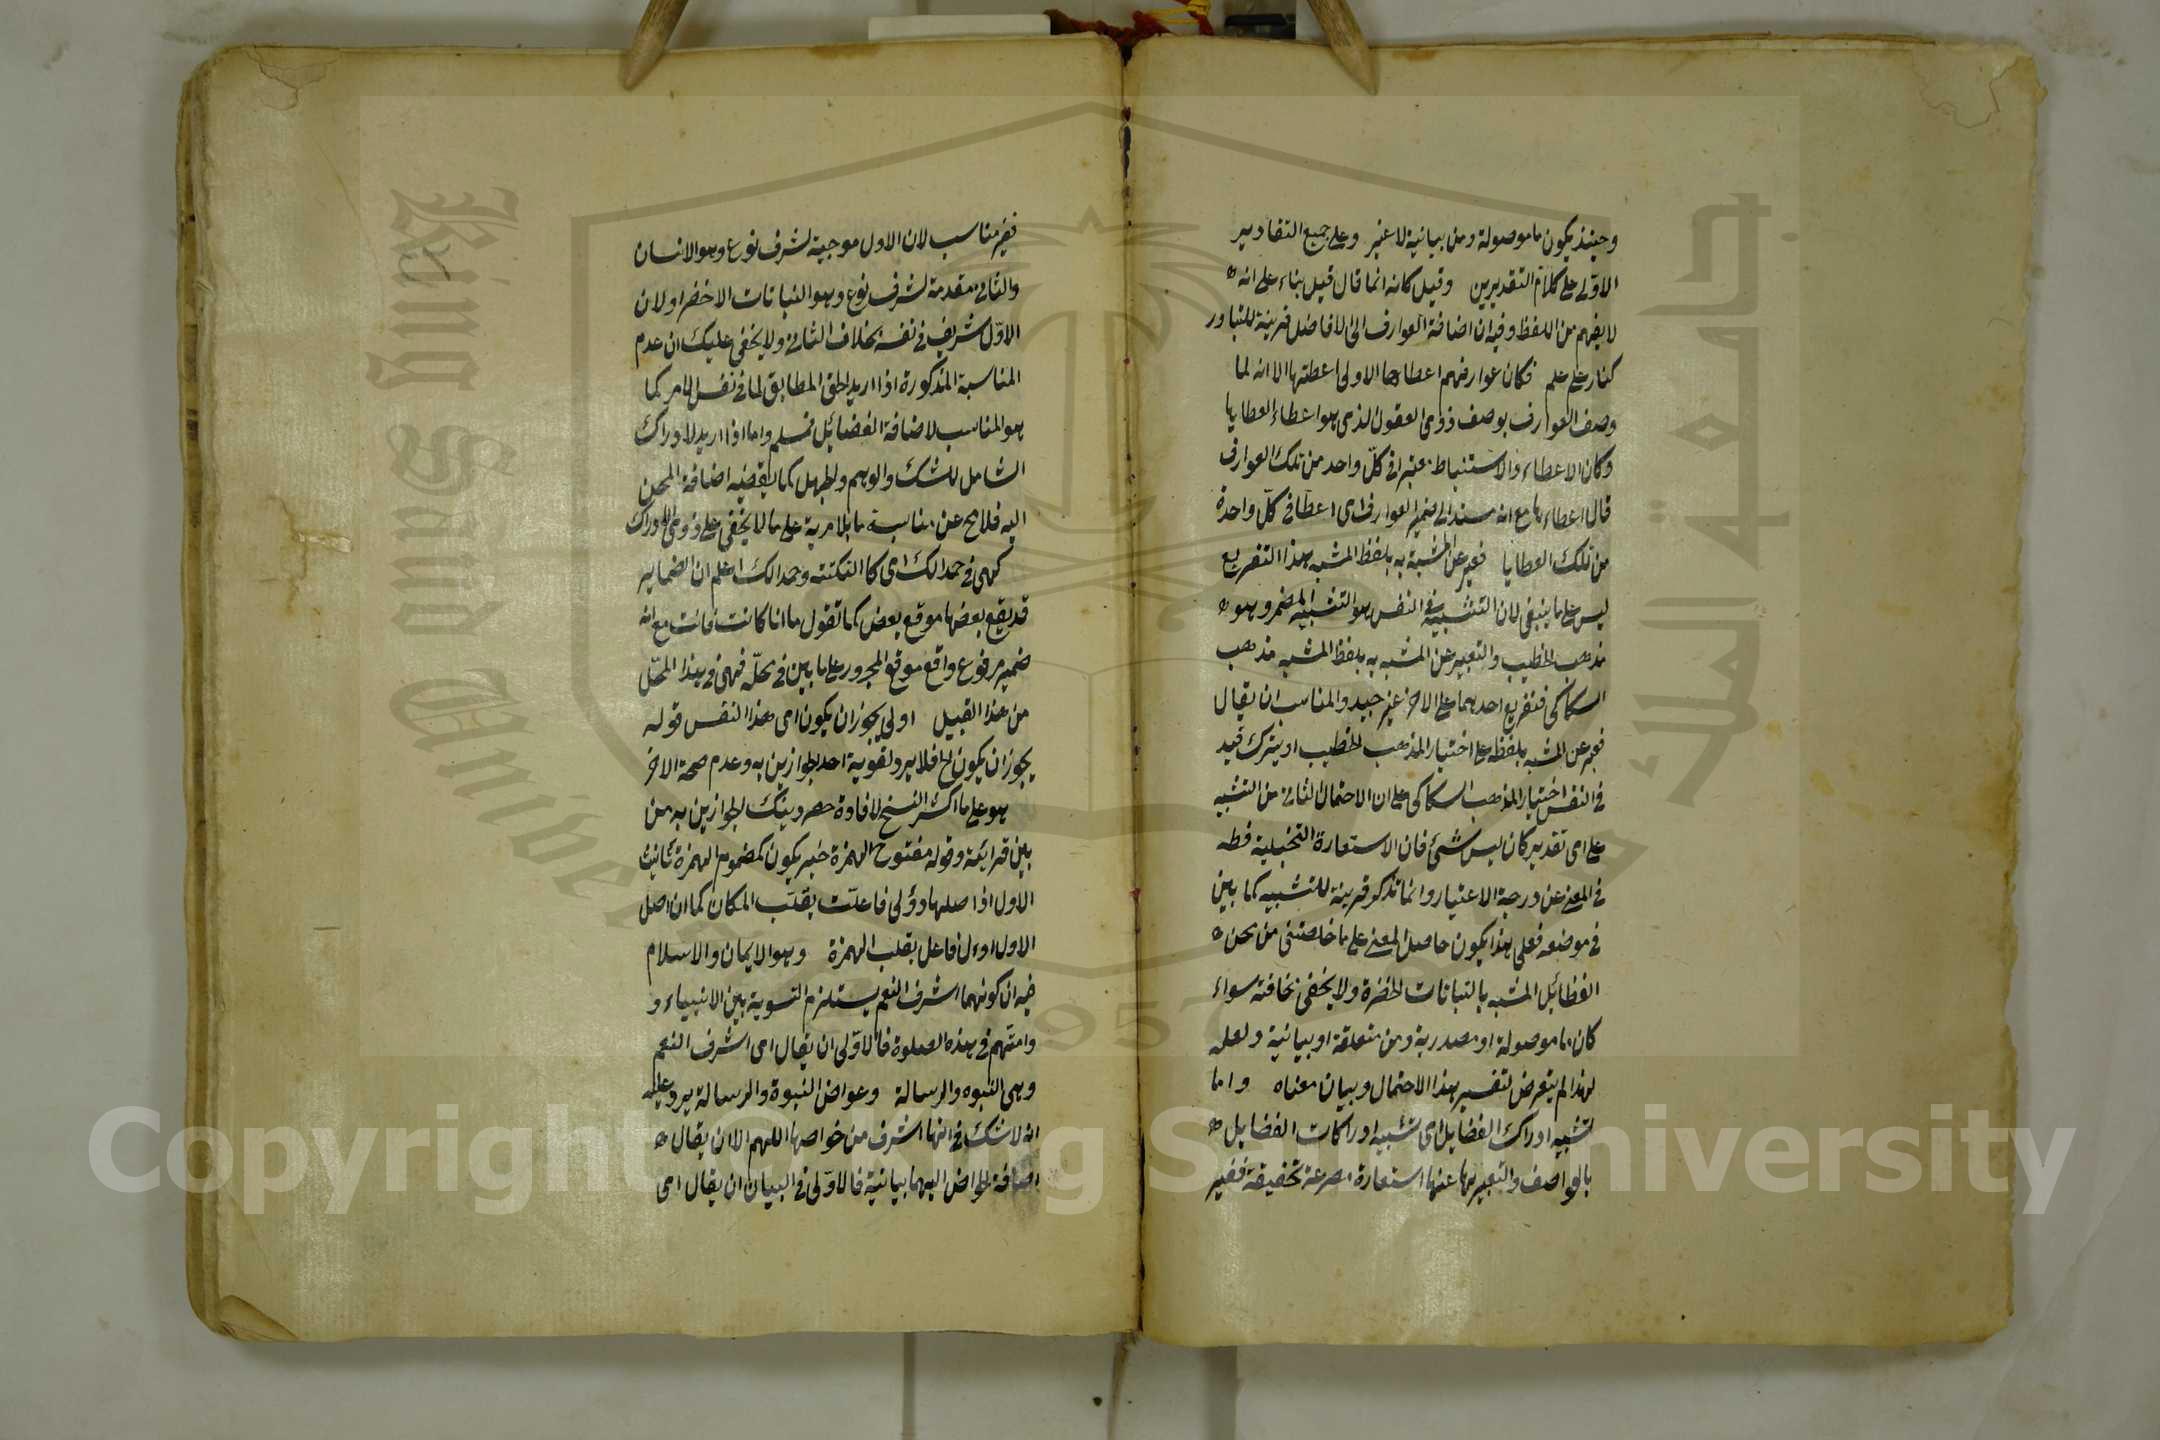 وحينئذ يكون ما موصولة ومن بيانية لا غير وعلى جميع التقادير
الاولى على كلام التقديرين وقيل كانه انما قال قيل بناء على انه
لا يفهم من اللفظ وفيه ان اضافة العوارف الى الافاضل قرينة للتبادر
كنار على علم فكان عوارفهم اعطاءها الاولى اعطتها الا انه لما
وصف العوارف بوصف ذوى العقول الذى هو اعطاء العطايا
وكان الاعطاء والاستنباط معتبرا فى كل واحد من تلك العوارف
قال اعطاءها مع انه مسند الى ضمير العوارف اى اعطا فى كل واحدة
من تلك العطايا فعبر عن المشبه به بلفظ المشبه هذا التفريع
ليس على ما ينبغى لان التشبيه فى النفس هو التشبيه المضمر وهو
مذهب الخطيب والتعبير عن المشبه به بلفظ المشبه مذهب
السكاكى فتفريع احدهما على الاخر غير جيد والمناسب ان يقال
فعبر عن المشبه بلفظه على اختيار المذهب الخطيب او يترك قيد
فى النفس اختيار المذهب السكاكى على ان الاحتمال الثانى من التشبيه
على اى تقدير كان ليس شئ فان الاستعارة التخييلية
فى المعنى عن درجة الاعتبار وانما تذكر قرينة للتشبيه كما بين
فى موضعه فعلى هذا يكون حاصل المعنى على ما خلصتنى من محن
الفظائل المشبه بالنباتات الخضرة ولا يخفى سخافته سواء
كان ما موصولة او مصدرية ومن متعلقة او بيانية ولعله
لهذا لم يتعرض لتفسير هذا الاحتمال وبيان معناه واما
تشبيه ادراك الفضايل اى تشبيه ادراكات الفضايل
بالعواصف والتعبير بها عنها استعارة مصرحة تحقيقية فغير
فغير مناسب لان الاول موجبة لشرف نوع وهو الانسان
والثانى مقدمة لشرف نوع وهو النباتات الاخضر او لان
الاول شريف فى نفسه بخلاف الثانى ولا يخفى عليك ان عدم
المناسبة المذكورة اذا اريد الحق المطابق لما فى نفس الامر كما
هو المناسب لاضافة الفضائل فمسلم واما اذا اريد الادراك
الشامل للشك والوهم والجهل كما يقضيه اضافة المحن
اليه فلا مح عن مناسبة ما بلا مرية على ما لا يخفى على ذوى الادراك
كهى فى حمدا لك اى كا النكتته وحمدا لك اعلم ان الضمائر
قد يقع بعضها موقع بعض كما تقول ما انا كانت فانت مع انه
ضمير مرفوع واقع موقع المجرور على ما بين فى محله فهى فى هذا المحل
من هذا القبيل اولى يجوز ان يكون اى هذا النقس قوله
يجوز ان يكون الخ فلا يرد تقوية احد الجوازين به وعدم صحة الاخر
هو على ما اكثر النسخ لافادة حصر دينك الجوازين به من
بين قرائته وقوله مفتوح الهمزة خبر يكون كمضموم الهمزة تانيث
الاول اذ اصلها دؤلى فاعلت بقلب المكان كما ان اصل
الاول اوءل فاعل بقلب الهمزة وهو الايمان والاسلام
فيه ان كونهما اشرف النعم يستلزم التسوية بين الانبياء و
وامتهم فى هذه الصلوة فالاولى ان يقال اى اشرف النعم
وهى النبوه والرسالة وعوارض النبوة والرسالة يرد عليه
انه لا شك فى انها اشرف من خواصها اللهم الا ان يقال
اضافة الخواض اليهما بيانية فالاولى فى البيان ان يقال اى
King Saud University
جامعة الملك سعود
1957
Copyright © King Saud University